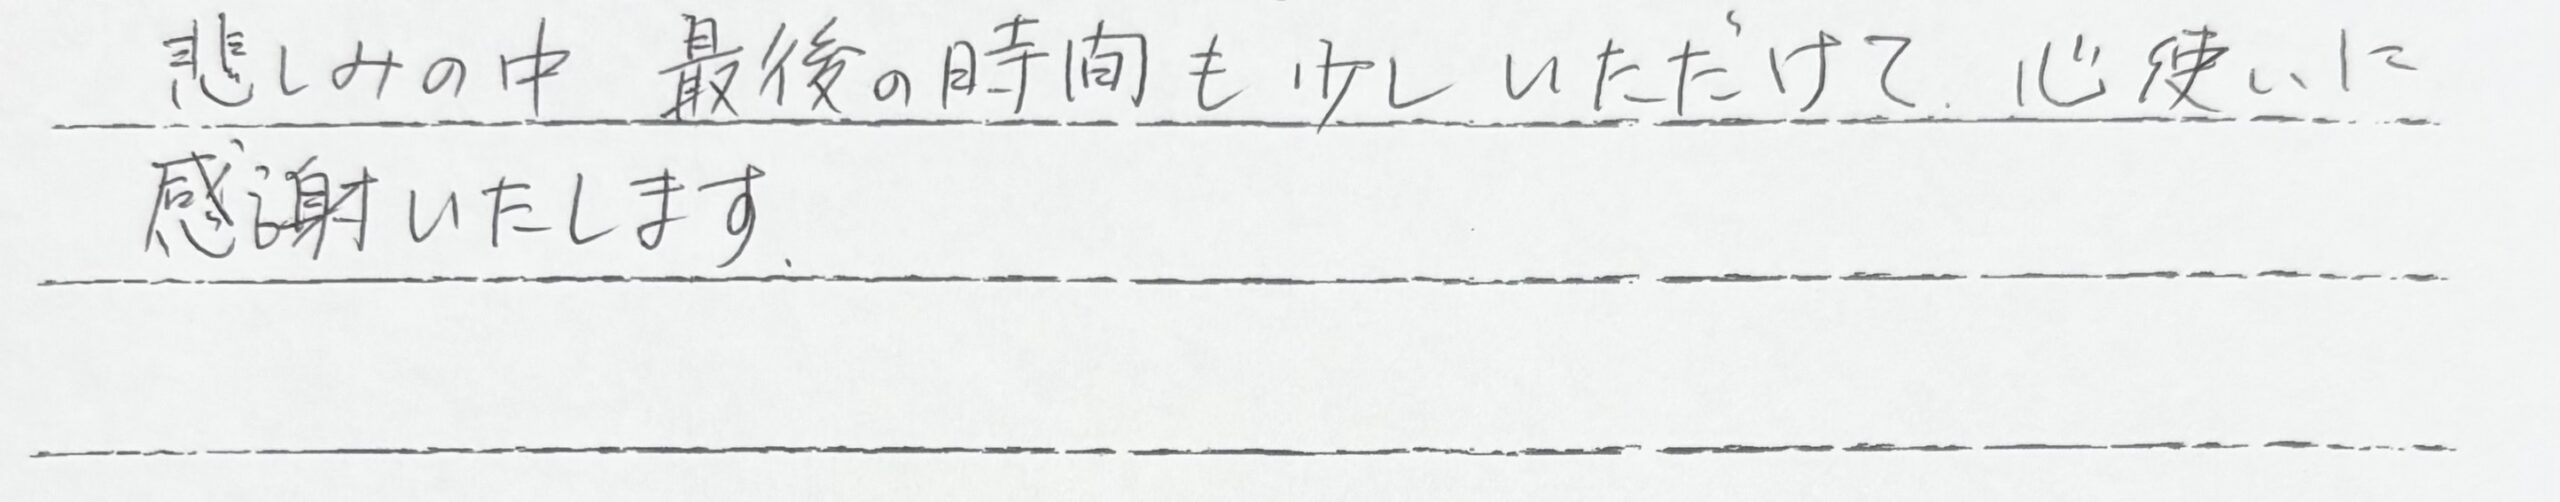 悲しみの中 最後の時間も少しいただけて、心使いに
感謝いたします。